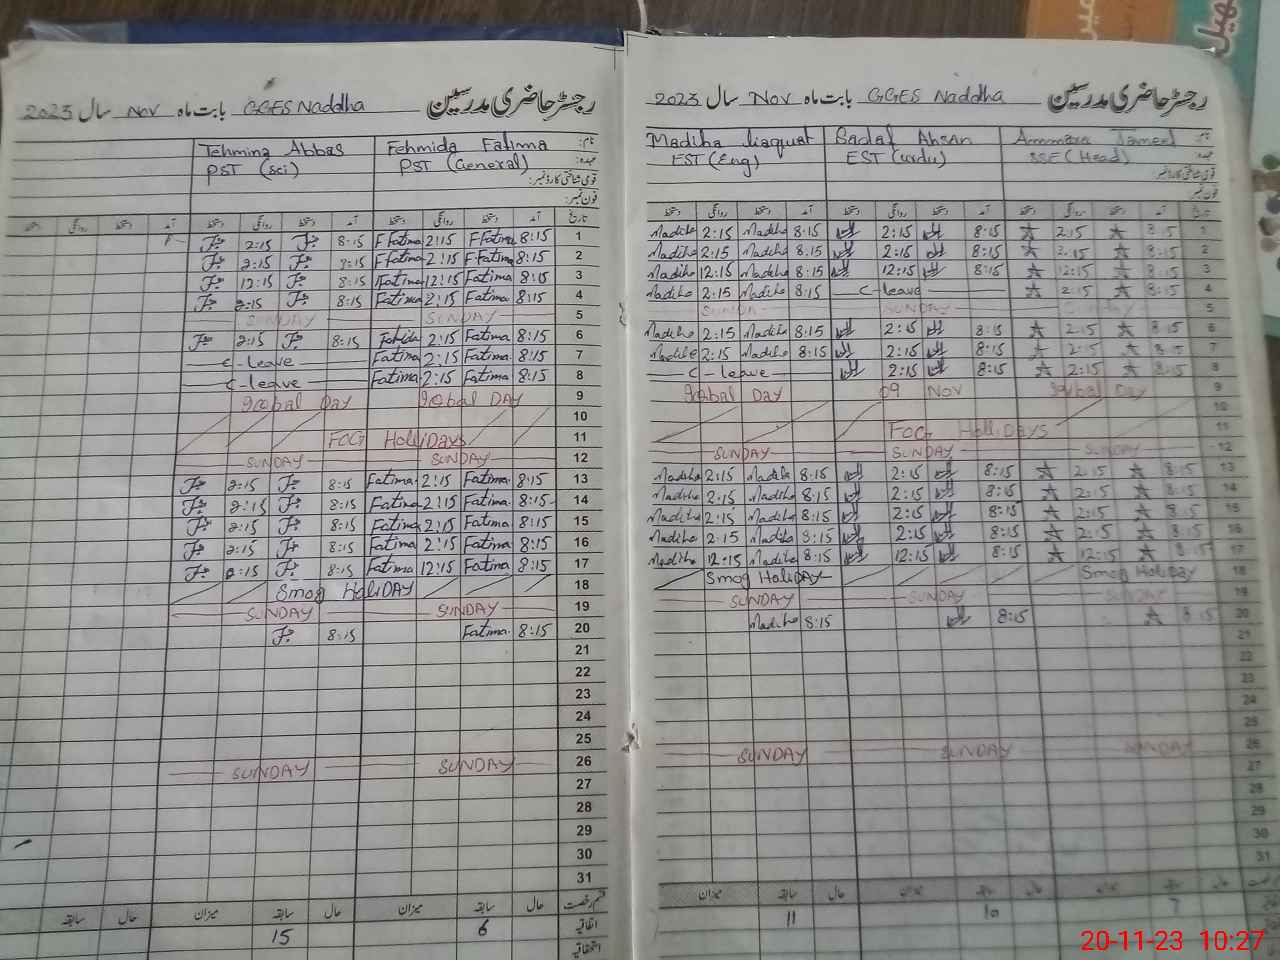 رجسٹر حاضری مدرسین GGES Naddha بابت ماہ Nov سال 2023
نام: Fehmida Fatima Tehmina Abbas
عہدہ: PST (General) PST (Sci)
قومی شناختی کارڈ نمبر:
فون نمبر:
تاریخ آمد دستخط روانگی دستخط آمد دستخط روانگی دستخط آمد دستخط روانگی دستخط
1 8:15 F Fatima 2:15 F Fatima 8:15 2:15
2 8:15 F Fatima 2:15 F Fatima 8:15 2:15
3 8:15 Fatima 12:15 Fatima 8:15 12:15
4 8:15 Fatima 2:15 Fatima 8:15 2:15
5 SUNDAY SUNDAY
6 8:15 Fatima 2:15 8:15 2:15
7 8:15 Fatima 2:15 Fatima C-leave
8 8:15 Fatima 2:15 Fatima C-leave
9 Iqbal DAY Iqbal Day
10
11 FOG HoliDays
12 SUNDAY SUNDAY
13 8:15 Fatima 2:15 Fatima 8:15 2:15
14 8:15 Fatima 2:15 Fatima 8:15 2:15
15 8:15 Fatima 2:15 Fatima 8:15 2:15
16 8:15 Fatima 2:15 Fatima 8:15 2:15
17 8:15 Fatima 12:15 Fatima 8:15 2:15
18 Smog HoliDAY
19 SUNDAY SUNDAY
20 8:15 Fatima 8:15
21
22
23
24
25
26 SUNDAY SUNDAY
27
28
29
30
31
قسم رخصت حال سابقہ میزان حال سابقہ میزان حال سابقہ
اتفاقیہ 6 15
استحقاقیہ
رجسٹر حاضری مدرسین GGES Naddha بابت ماہ Nov سال 2023
نام: Sadaf Ahsan Madiha liaquat
عہدہ: SSE (Head) EST (urdu) EST (Eng)
قومی شناختی کارڈ نمبر:
فون نمبر:
تاریخ آمد دستخط روانگی دستخط آمد دستخط روانگی دستخط آمد دستخط روانگی دستخط
1 8:15 2:15 8:15 2:15 8:15 Madiha 2:15 Madiha
2 8:15 2:15 8:15 2:15 8:15 Madiha 2:15 Madiha
3 8:15 12:15 8:15 12:15 8:15 Madiha 12:15 Madiha
4 8:15 2:15 C-leave 8:15 Madiha 2:15 Madiha
5 SUNDAY SUNDAY SUNDAY
6 8:15 2:15 8:15 2:15 8:15 Madiha 2:15 Madiha
7 8:15 2:15 8:15 2:15 8:15 Madiha 2:15 Madiha
8 8:15 2:15 8:15 2:15 C-leave
9 Iqbal Day 09 Nov Iqbal Day
10
11 FOG HolliDAYS
12 SUNDAY SUNDAY SUNDAY
13 8:15 2:15 8:15 2:15 8:15 Madiha 2:15 Madiha
14 8:15 2:15 8:15 2:15 8:15 Madiha 2:15 Madiha
15 8:15 2:15 8:15 2:15 8:15 Madiha 2:15 Madiha
16 8:15 2:15 8:15 2:15 8:15 Madiha 2:15 Madiha
17 8:15 12:15 8:15 12:15 8:15 Madiha 12:15 Madiha
18 Smog Holiday Smog HoliDAY
19 SUNDAY SUNDAY SUNDAY
20 8:15 8:15 8:15 Madiha
21
22
23
24
25
26 SUNDAY SUNDAY SUNDAY
27
28
29
30
31
حال سابقہ میزان حال سابقہ میزان حال سابقہ میزان
7 10 11
20-11-23 10:27